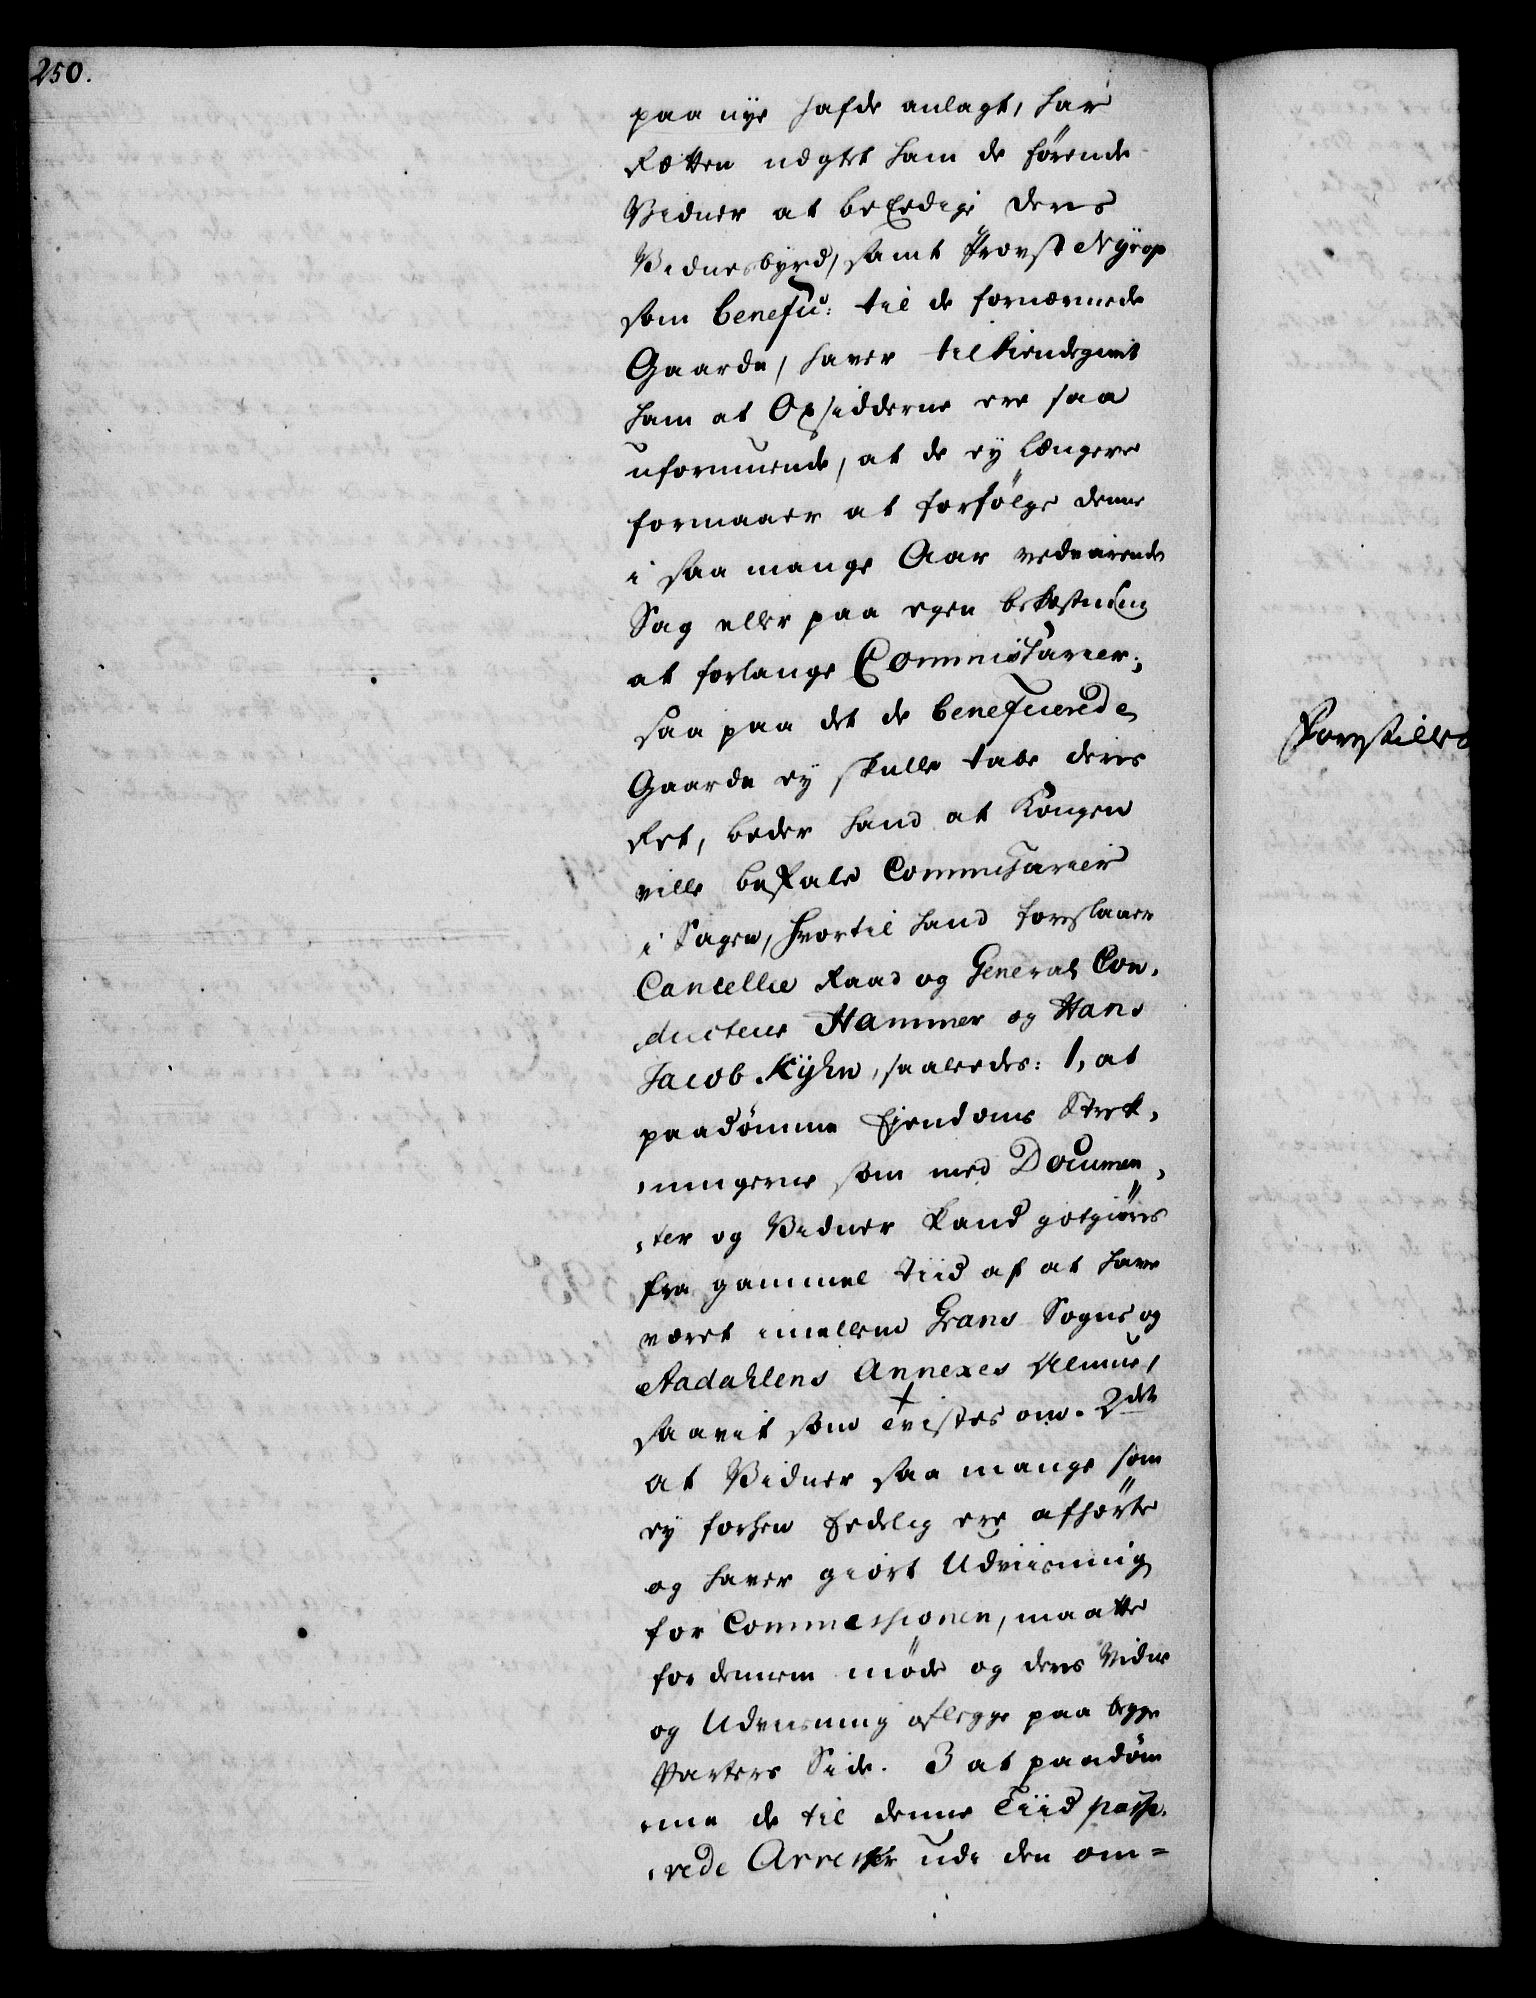 250.
paa nye hafde anlagt, har
Retten negtet ham de førende
Vidner at beEedige deres
Vidnesbyrd, samt Provst Nyrop
som benefic: til de fornærmede
Gaarde, haver tilkiendegivet
ham at Opsidderne ere saa
uformuende, at de ey længere
formaaer at forfølge denne
i saa mange Aar vedvarende
Sag eller paa egen bekostning
at forlange Commissarier;
saa paa det de beneficerede
Gaarde ey skulle tabe deres
Ret, beder hand at Kongen
ville befale Commissarier
i Sagen, hvortil hand foreslaaer
Cancellie Raad og General Con,
,ducteur Hammer og Hans
Jacob Kyhn, saaledes: 1, at
paadømme Ejendoms Strek,
,ningerne som med Documen,
,ter og Vidner kand godgiøres
fra gammel tiid af at have
været imellem Grans Sogns og
Aadahlens Annexes Almue,
saavit som tvistes om. 2det
at Vidner saa mange som
ey forhen Eedelig ere afhørte
og haver giort Udviisning
for Commissionen, maatte
for dennem møde og deres Vidne
og Udviisning aflegge paa begge
Parters Side. 3 at paadøm
,me de til denne Tiid passe,
,rede Arrester udi den om=
Forestilles